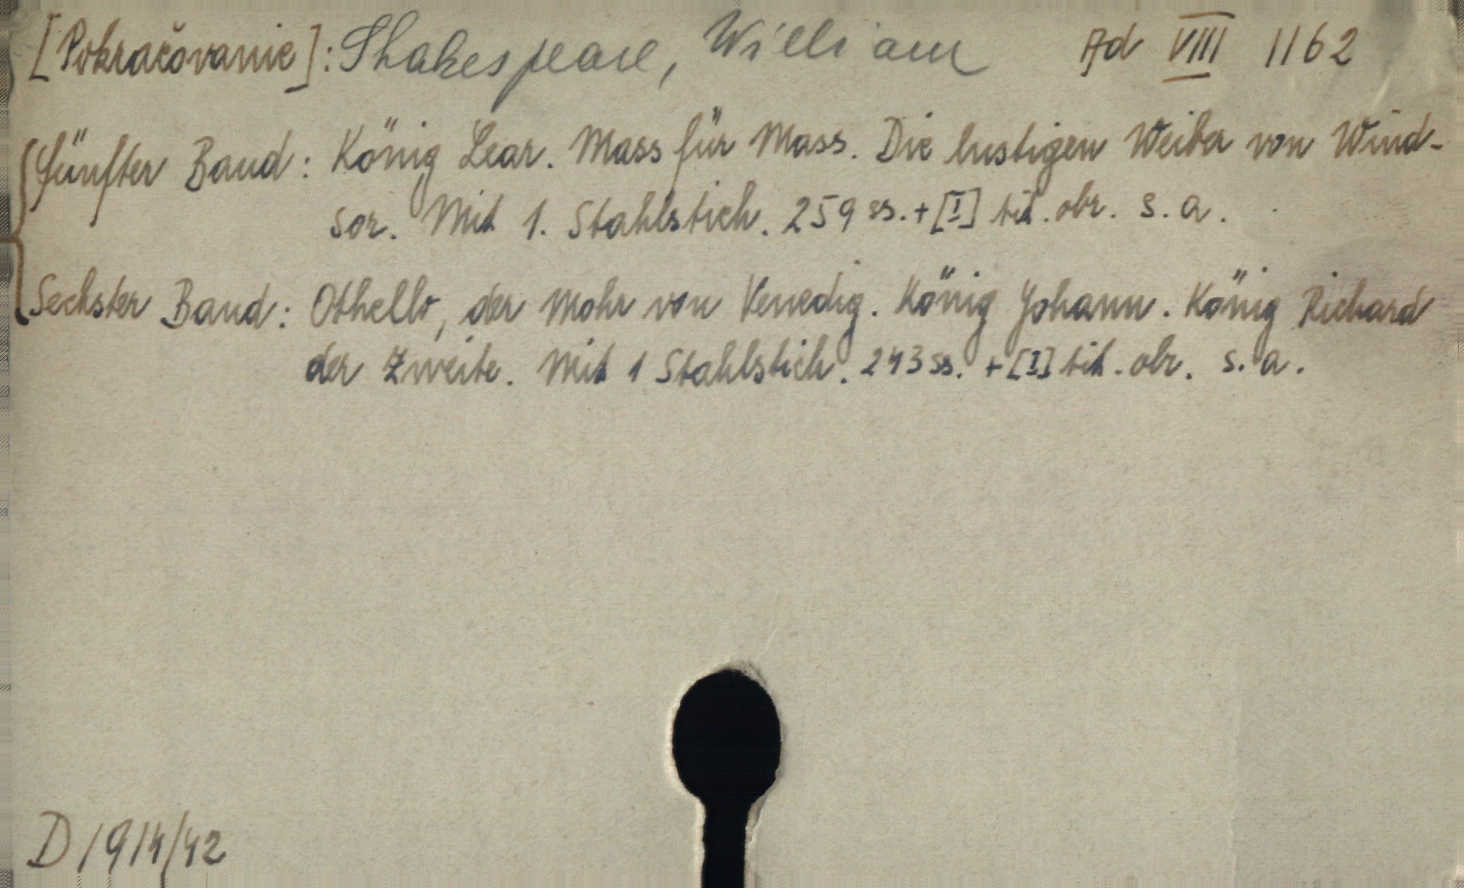 [Pokračovanie]: Shakespeare, William Ad VIII 1162
Fünfter Band: König Lear. Mass für Mass. Die lustigen Weiber von Wind-
sor. Mit 1. Stahlstich. 259 ss. + [I] tit. obr. s. a.
Sechster Band: Othello, der Mohr von Venedig. König Johann. König Richard
der Zweite. Mit 1 Stahlstich. 243 ss. + [I] tit. obr. s. a.
D 1914/42